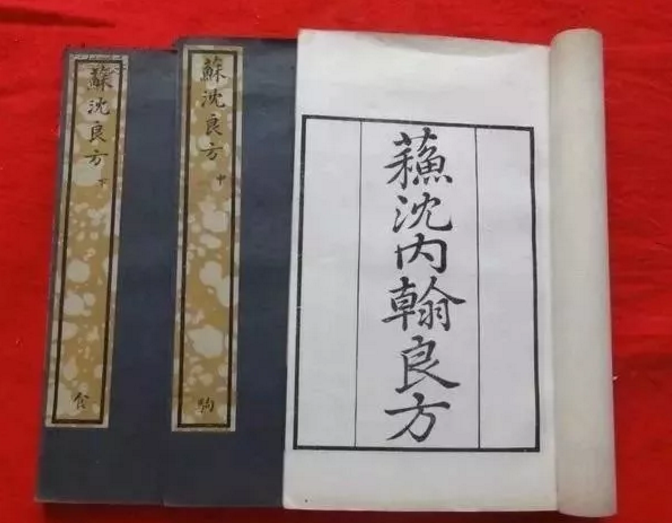 蘇沈內翰良方
蘇沈良方
中
駒
蘇沈良方
下
食